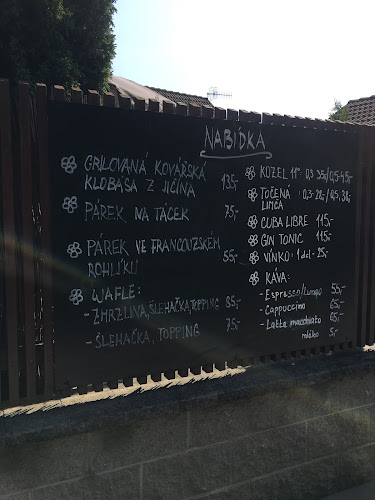 NABÍDKA
GRILOVANÁ KOVÁŘSKÁ
KLOBÁSA Z JIČÍNA 135,-
PÁREK NA TÁCEK 75,-
PÁREK VE FRANCOUZSKÉM
ROHLÍKU 55,-
WAFLE:
- ZMRZLINA, ŠLEHAČKA, TOPPING 85,-
- ŠLEHAČKA, TOPPING 75,-
KOZEL 11°: 0,3 35,-/0,5 45,-
TOČENÁ : 0,3 28,-/0,5 38,-
LIMČA
CUBA LIBRE 115,-
GIN TONIC 115,-
VÍNKO: 1 dcl - 25,-
KÁVA:
- Espresso/Lungo 55,-
- Cappuccino 65,-
- Latte macchiato 65,-
mléko 5,-